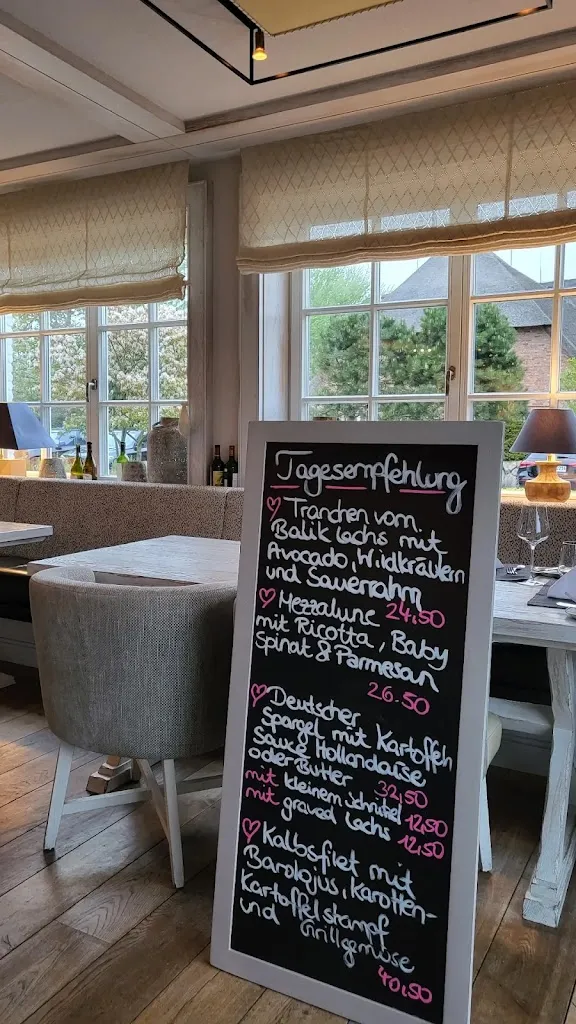 Tagesempfehlung
Tranchen vom
Balik Lachs mit
Avocado, Wildkräutern
und Sauerrahm
24,50
Mezzalune
mit Ricotta, Baby
Spinat & Parmesan
26.50
Deutscher
Spargel mit Kartoffeln
Sauce Hollandaise
oder Butter 32,50
mit kleinem Schnitzel 12,50
mit graved Lachs 12,50
Kalbsfilet mit
Barolojus, Karotten-
Kartoffelstampf
und Grillgemüse
40,50